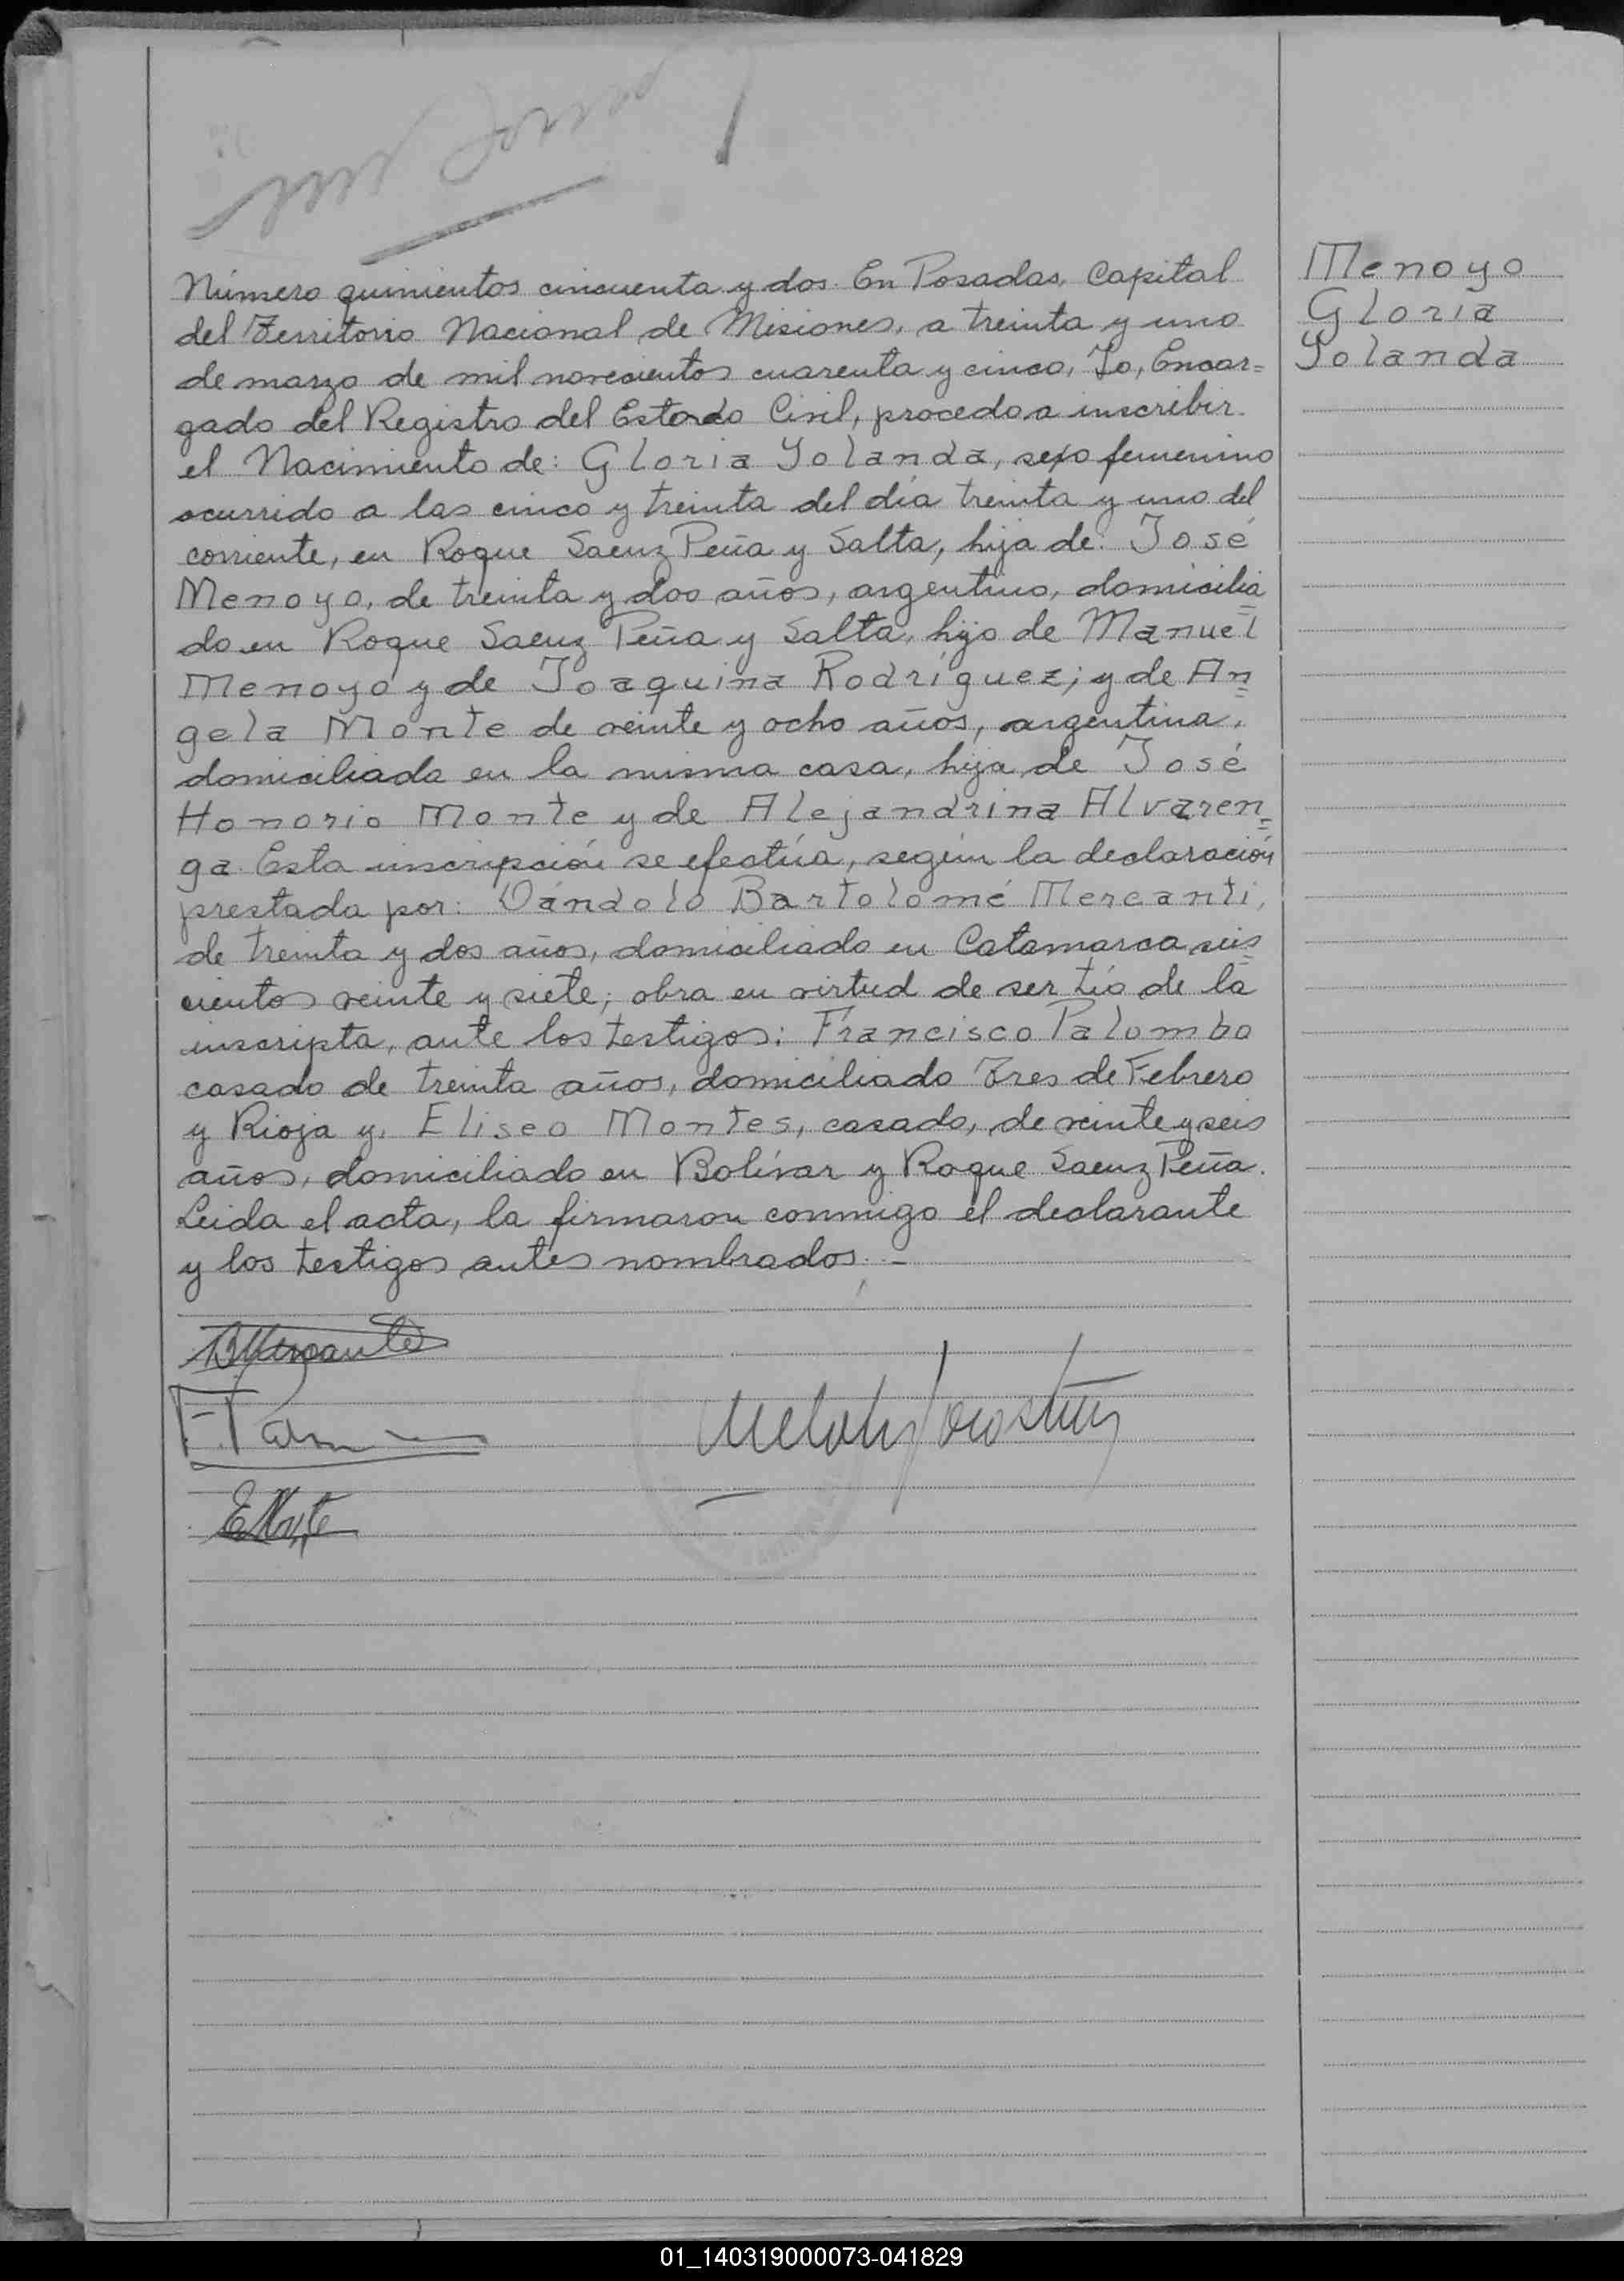 Número quinientos cincuenta y dos. En Posadas, Capital
del Territorio Nacional de Misiones, a treinta y uno
de marzo de mil novecientos cuarenta y cinco, Yo, Encar=
gado del Registro del Estado Civil, procedo a inscribir
el Nacimiento de: Gloria Yolanda, sexo femenino
ocurrido a las cinco y treinta del día treinta y uno del
corriente, en Roque Saenz Peña y Salta, hija de: José
Menoyo, de treinta y dos años, argentino, domicilia=
do en Roque Saenz Peña y Salta, hijo de Manuel
Menoyo y de Joaquina Rodríguez; y de An=
gela Monte de veinte y ocho años, argentina,
domiciliada en la misma casa, hija de José
Honorio Monte y de Alejandrina Alvaren=
ga. Esta inscripción se efectúa, según la declaración
prestada por: Dándolo Bartolomé Mercanti,
de treinta y dos años, domiciliado en Catamarca seis=
cientos veinte y siete; obra en virtud de ser tío de la
inscripta, ante los testigos: Francisco Palombo
casado de treinta años, domiciliado Tres de Febrero
y Rioja y, Eliseo Montes, casado, de veinte y seis
años, domiciliado en Bolívar y Roque Saenz Peña.
Leida el acta, la firmaron conmigo el declarante
y los testigos antes nombrados.-
Menoyo
Gloria
Yolanda
01_140319000073-041829